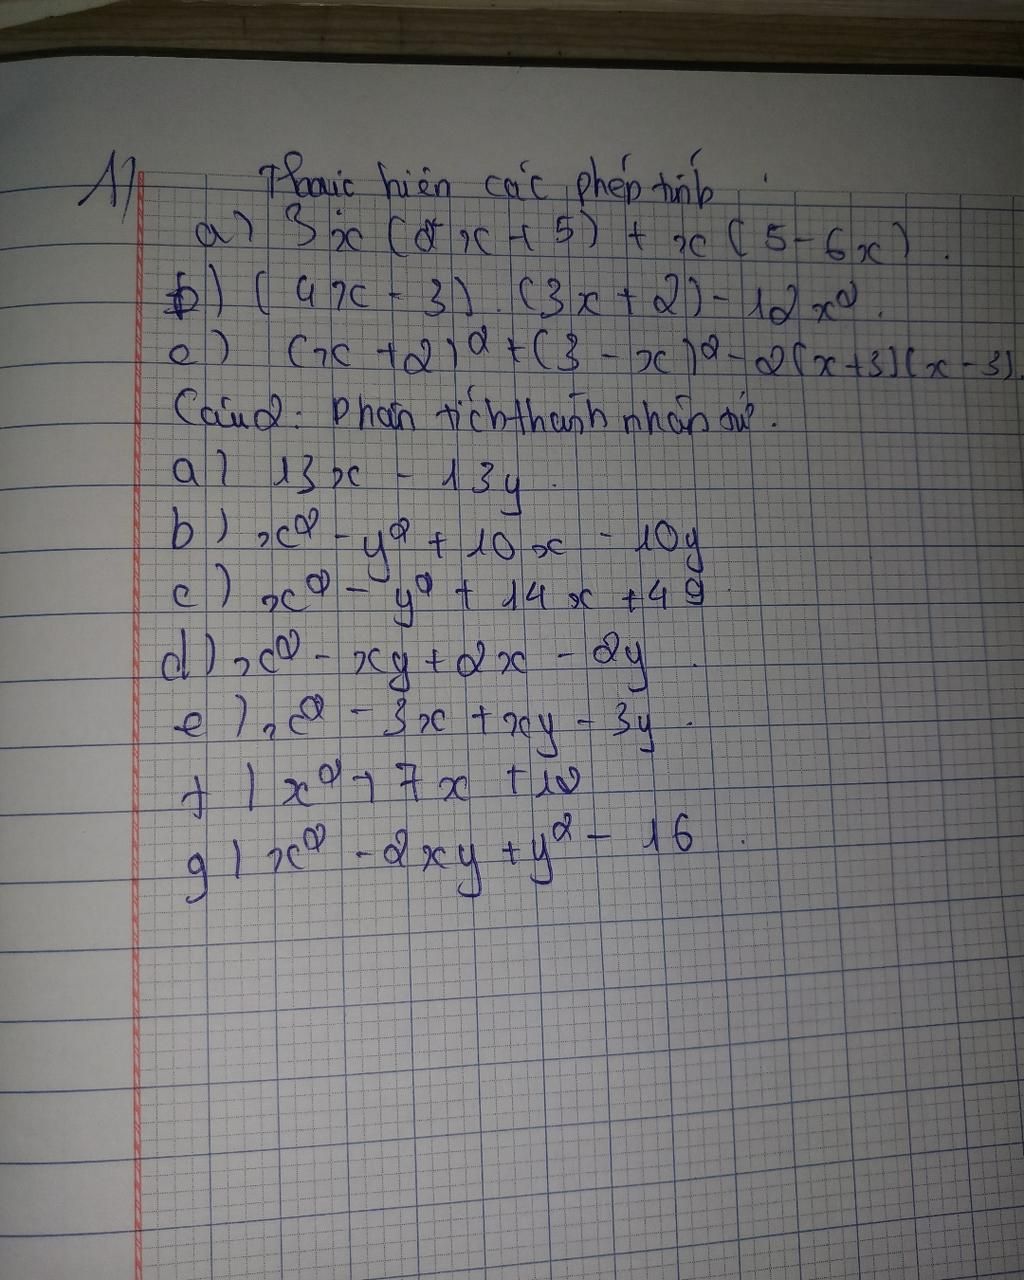 1) Thực hiện các phép tính
a) 3x (2x + 5) + x (5 - 6x).
b) (4x - 3). (3x + 2) - 12x².
c) (x + 2)² + (3 - x)² - 2(x+3)(x-3).
Câu 2: Phân tích thành nhân tử.
a) 13x - 13y.
b) x² - y² + 10x - 10y
c) x² - y² + 14x + 49
d) x² - xy + 2x - 2y.
e) x² - 3x + xy - 3y.
f) x² + 7x + 12
g) x² - 2xy + y² - 16.